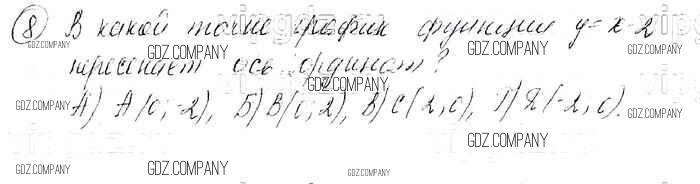 ⑧ В какой точке график функции y = x - 2
пересекает ось ординат?
А) A(0; -2), Б) B(0; 2), В) C(2; 0), Г) Д(-2; 0).
GDZ.COMPANY
GDZ.COMPANY
GDZ.COMPANY
GDZ.COMPANY
GDZ.COMPANY
GDZ.COMPANY
GDZ.COMPANY
GDZ.COMPANY
GDZ.COMPANY
GDZ.COMPANY
GDZ.COMPANY
GDZ.COMPANY